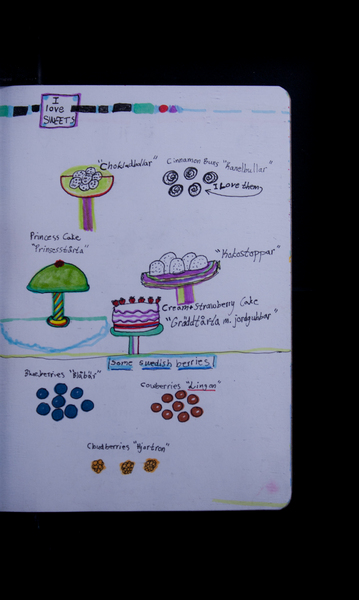 I
love
SWEETS
"Chokladbollar"
Cinnamon Buns "Kanelbullar"
I Love them
Princess Cake
"Prinsesstårta"
"Kokostoppar"
Cream+Strawberry Cake
"Gräddtårta m. jordgubbar"
Some swedish berries
Blueberries "Blåbär"
Cowberries "Lingon"
Cloudberries "Hjortron"